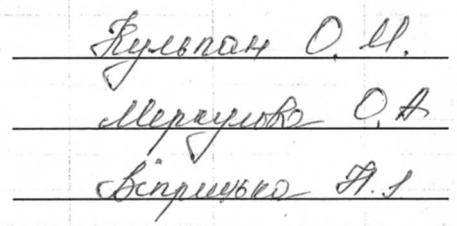 Кульпан О. М.
Меркулова О. А
Віприцька Н. І.